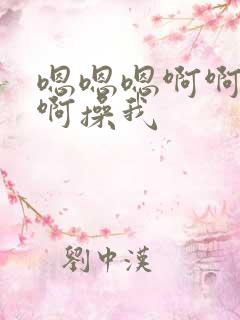 嗯嗯嗯啊啊
啊操我
劉中漢